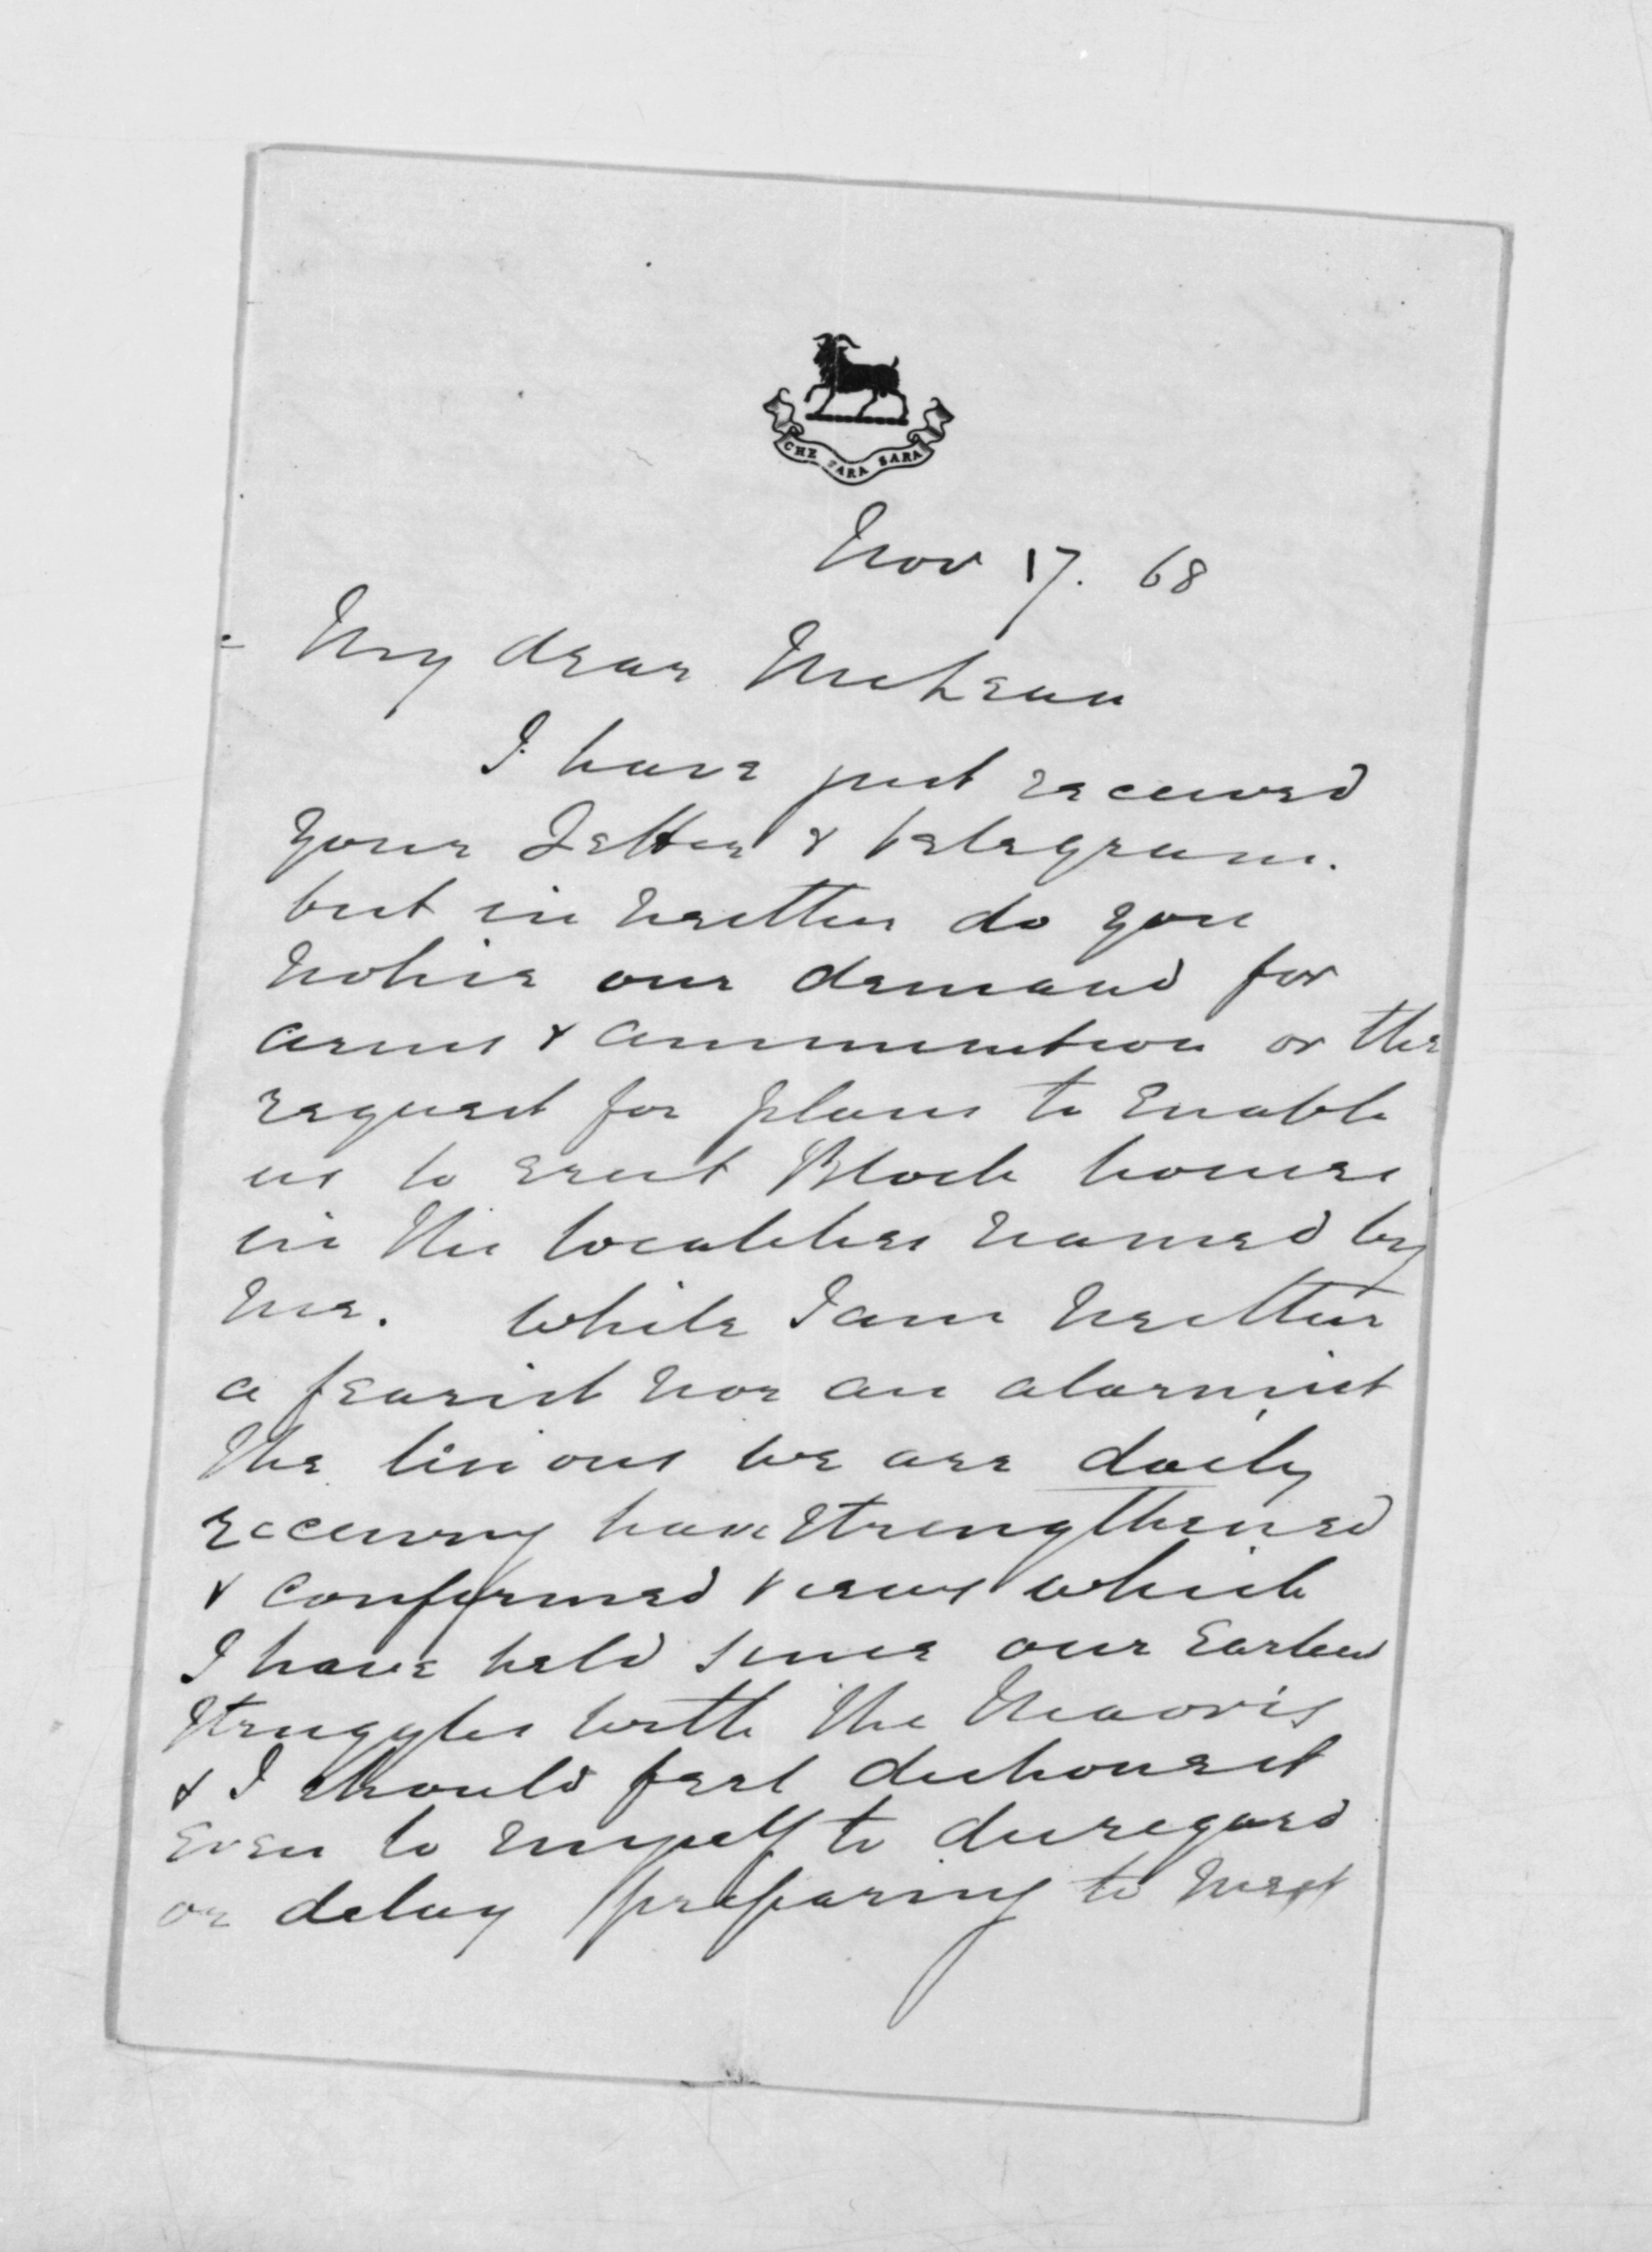 CHE SARA SARA
Nov 17. 68
My dear McLean
I have just received
your Letter & telegram.
but in neither do you
notice our demand for
arms & ammunition or the
request for plans to Enable
us to erect Block houses
in the localities named by
me. While I am neither
a fearist nor an alarmist
the we are daily
receiving have strengthened
& confirmed views which
I have held since our Earlier
struggles with the Maoris
& I should feel dishonest
Even to myself to disregard
or delay preparing to meet